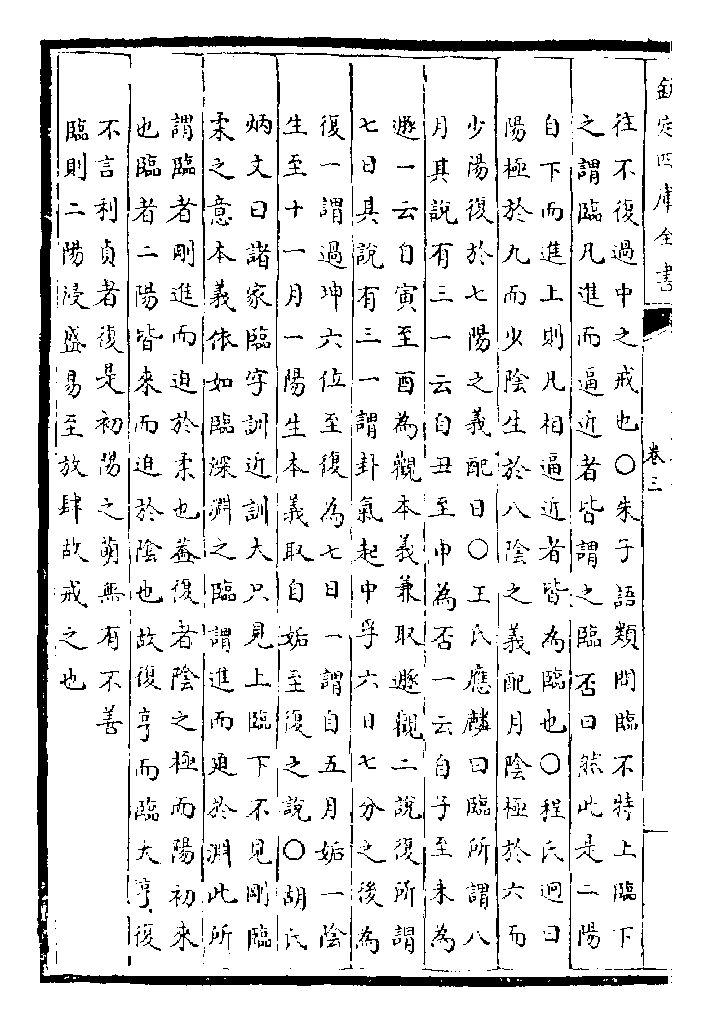 欽定四庫全書
卷三
往不復過中之戒也○朱子語類問臨不特上臨下
之謂臨凡進而逼近者皆謂之臨否曰然此是二陽
自下而進上則凡相逼近者皆為臨也○程氏迥曰
陽極於九而少陰生於八陰之義配月陰極於六而
少陽復於七陽之義配日○王氏應麟曰臨所謂八
月其說有三一云自丑至申為否一云自子至未為
遯一云自寅至酉為觀本義兼取遯觀二說復所謂
七日其說有三一謂卦氣起中孚六日七分之後為
復一謂過坤六位至復為七日一謂自五月姤一陰
生至十一月一陽生本義取自姤至復之說○胡氏
炳文曰諸家臨字訓近訓大只見上臨下不見剛臨
柔之意本義依如臨深淵之臨謂進而迫於淵此所
謂臨者剛進而迫於柔也蓋復者陰之極而陽初來
也臨者二陽皆來而迫於陰也故復亨而臨大亨復
不言利貞者復是初陽之萌無有不善
臨則二陽浸盛易至放肆故戒之也